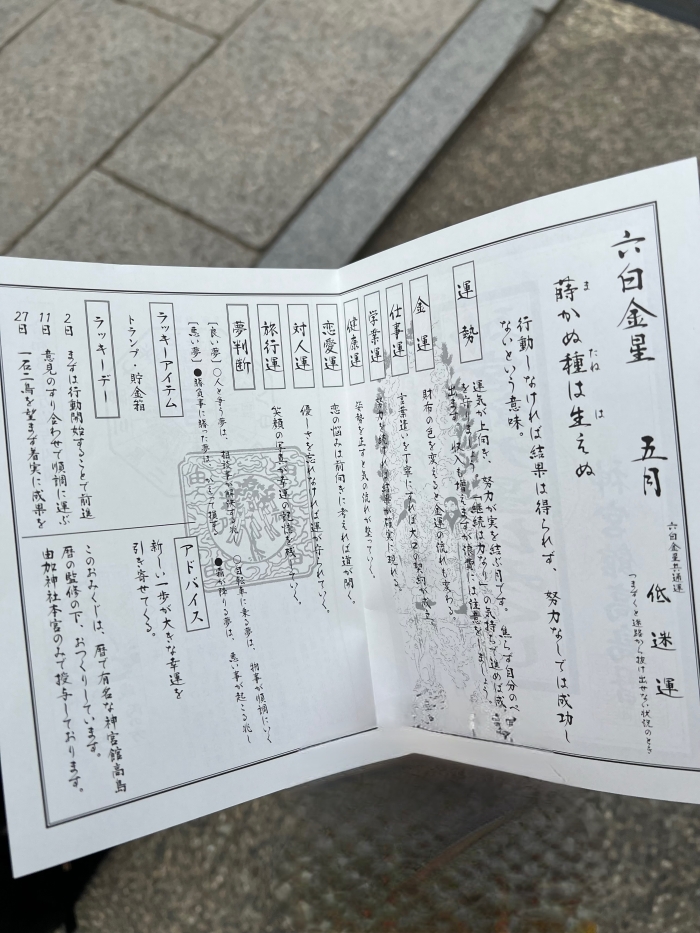 六白金星　五月
六白金星共通運
低迷運
つまずくと迷路から抜け出せない状況のとき
蒔かぬ種は生えぬ
ま
たね
は
行動しなければ結果は得られず、努力なしでは成功し
ないという意味。
運勢
運気が上向き、努力が実を結ぶ月です。焦らず自分のペ
継続は力なりの気持ちで進めば成
収入も増えますが浪費には注意をしましょう。
金運
財布の色を変えると金運の流れも変わる。
仕事運
言葉遣いを丁寧にすれば大口の契約が
学業運
努力を続ければ結果が確実に現れる。
健康運
姿勢を正すと気の流れが整っていく。
恋愛運
恋の悩みは前向きに考えれば道が開く。
対人運
優しさを忘れなければ運が守られていく。
旅行運
笑顔の写真が幸運の記憶を残していく。
夢判断
［良い夢］○人と争う夢は、相談事が解決する兆
○自転車に乗る夢は、物事が順調にいく
［悪い夢］●勝負事に勝った夢は、かえって損する
●霜が降りる夢は、悪い事が起こる兆し
ラッキーアイテム
トランプ・貯金箱
ラッキーデー
2日　まずは行動開始することで前進
11日　意見のすり合わせで順調に運ぶ
27日　一石二鳥を望まず着実に成果を
アドバイス
新しい一歩が大きな幸運を
引き寄せてくる。
このおみくじは、暦で有名な神宮館高島
暦の監修の下、おつくりしています。
由加神社本宮のみで授与しております。